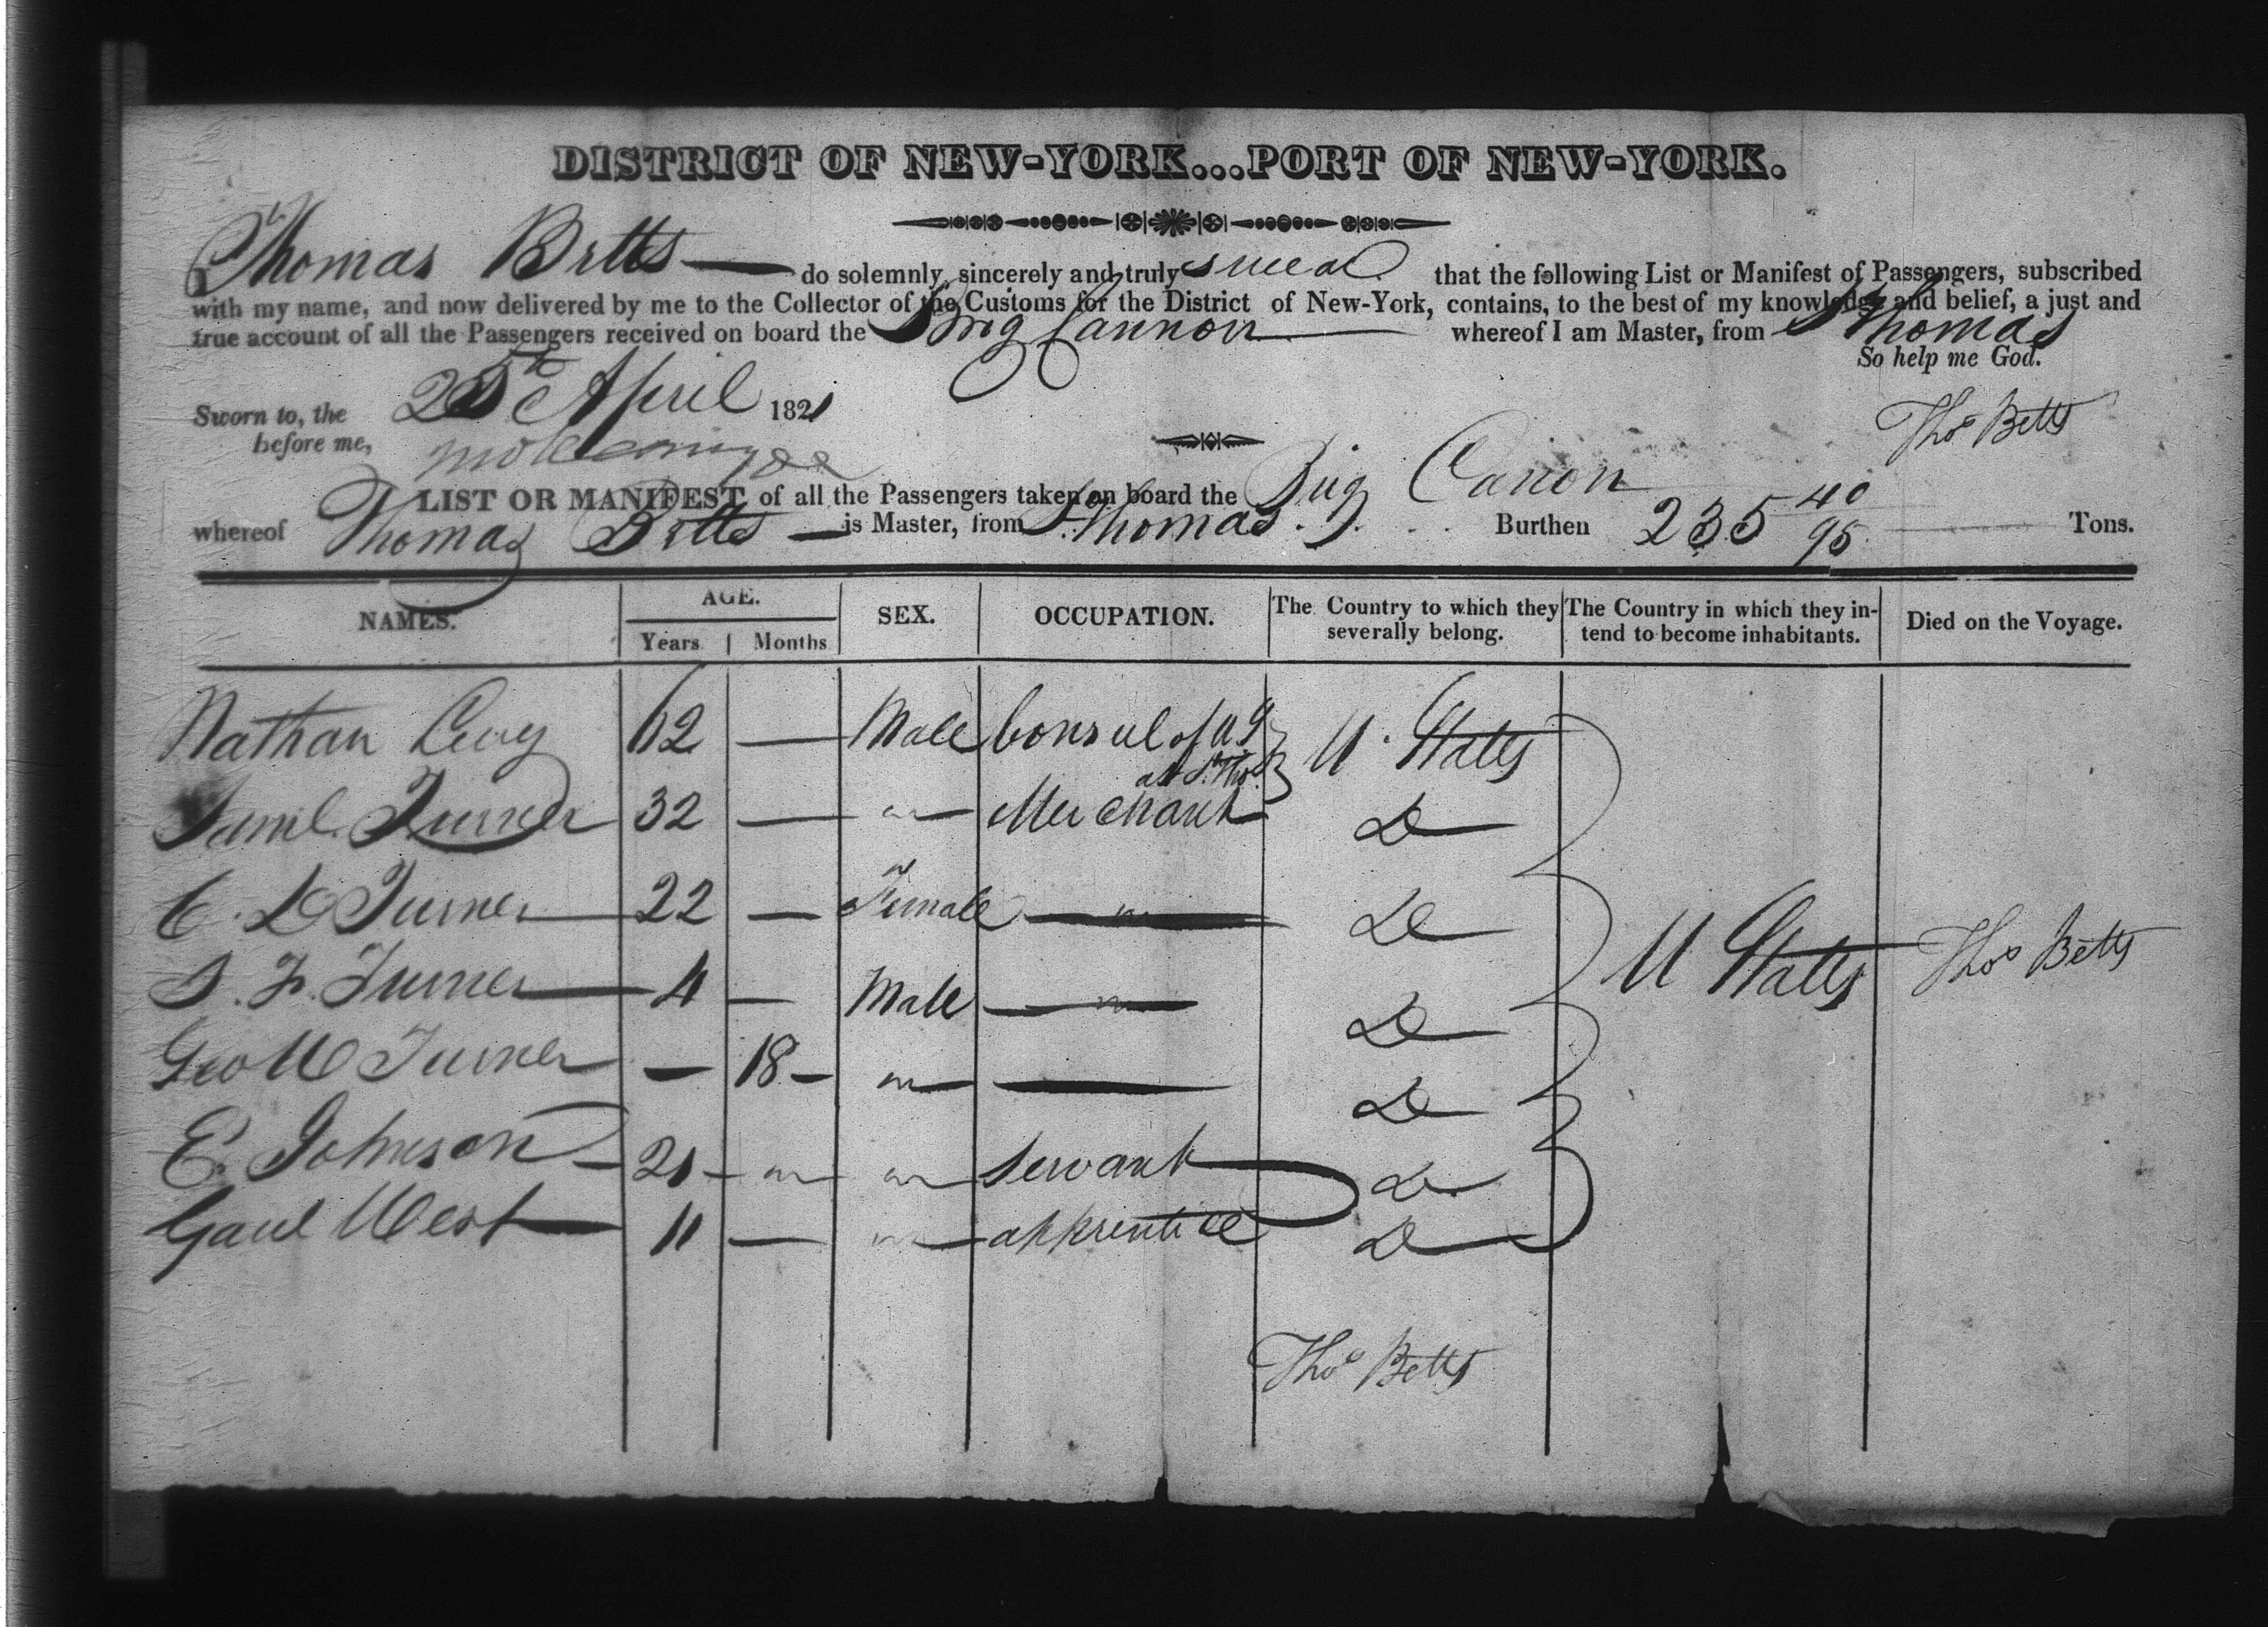 DISTRICT OF NEW-YORK...PORT OF NEW-YORK.
I Thomas Betts do solemnly, sincerely and truly swear that the following List or Manifest of Passengers, subscribed
with my name, and now delivered by me to the Collector of the Customs for the District of New-York, contains, to the best of my knowledge and belief, a just and
true account of all the Passengers received on board the Brig Cannon whereof I am Master, from St Thomas
So help me God.
Sworn to, the 25th April 1821
before me,
Thos Betts
LIST OR MANIFEST of all the Passengers taken on board the Brig Canon
whereof Thomas Betts is Master, from St. Thomas. Burthen 235 40/95 Tons.
NAMES. AGE. SEX. OCCUPATION. The Country to which they severally belong. The Country in which they intend to become inhabitants. Died on the Voyage.
Years Months
Nathan Levy 62 — Male Consul of US U. States
at St. Thos
Saml. Turner 32 — " Merchant Do
C. D Turner 22 — Female — Do
S. F. Turner 4 — Male — Do U States Thos Betts
Geo W Turner — 18 — " — Do
E. Johnson 21 " " Servant Do
West 11 — " apprentice Do
Thos Betts